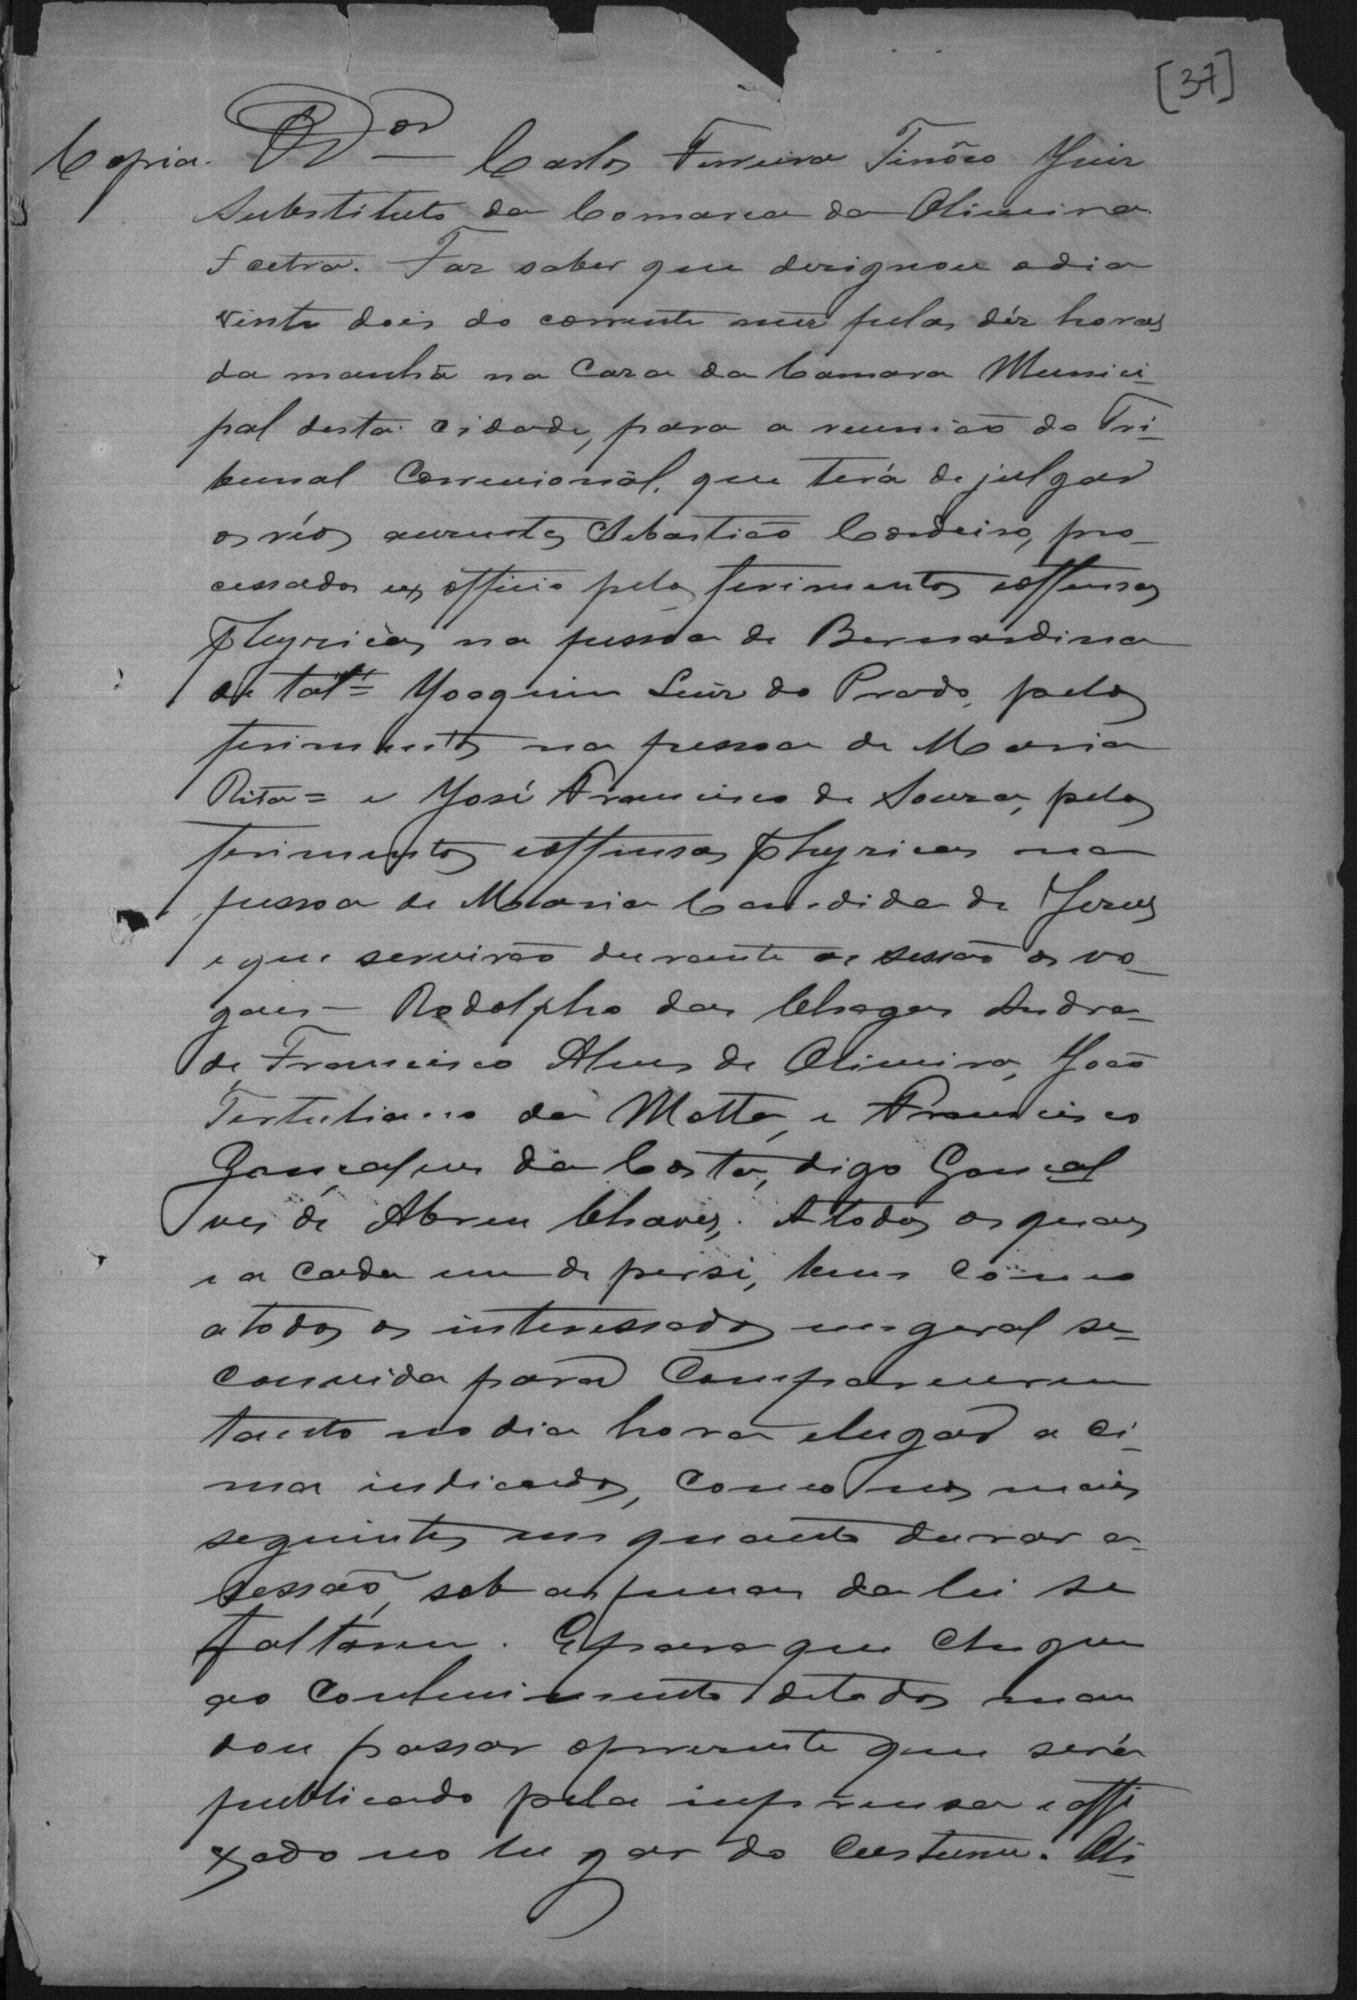 [37]
Copia. O Dor Carlos Ferreira Tinôco Juiz
Substituto da Comarca da Oliveira
Faetra. Faz saber que designou odia
vinte dois do corrente mez pelas déz horas
da manhã na Caza da Camara Munici-
pal desta cidade, para a reunião do Tri-
bunal Correcional, que terá de julgar
os réos auzentes Sebastião Cordeiro, pro-
cessados ex officio pelos ferimentos eoffensas
Physicas na pessoa de Bernardina
de tal = Joaquim Luiz do Prado, pelos
ferimentos na pessoa de Maria
Rita = e José Francisco de Souza, pelos
ferimentos eoffensas Physicas na
pessoa de Maria Candida de Jezus
e que servirão durante a sessão os vo-
gaes - Rodolpho das Chagas Andra-
de, Francisco Alves de Oliveira, João
Tertuliano da Motta, e Francisco
Gonçalves da Costa, digo Gonçal
ves de Abreu Chaves,. A todos os quaes
e a cada um de persi, bem como
a todos os interessados em geral se-
convida para Comparecerem
tanto no dia hora elugar a ci-
ma indicados, como nos mais
seguintes em quanto durar a-
sessão, sob as penas da lei se
faltarem. E para que chegue
ao Conhecimento detodos man
dou passar opresente que será
publicado pela imprensa e affi
xado no lugar do Custume. Oli-